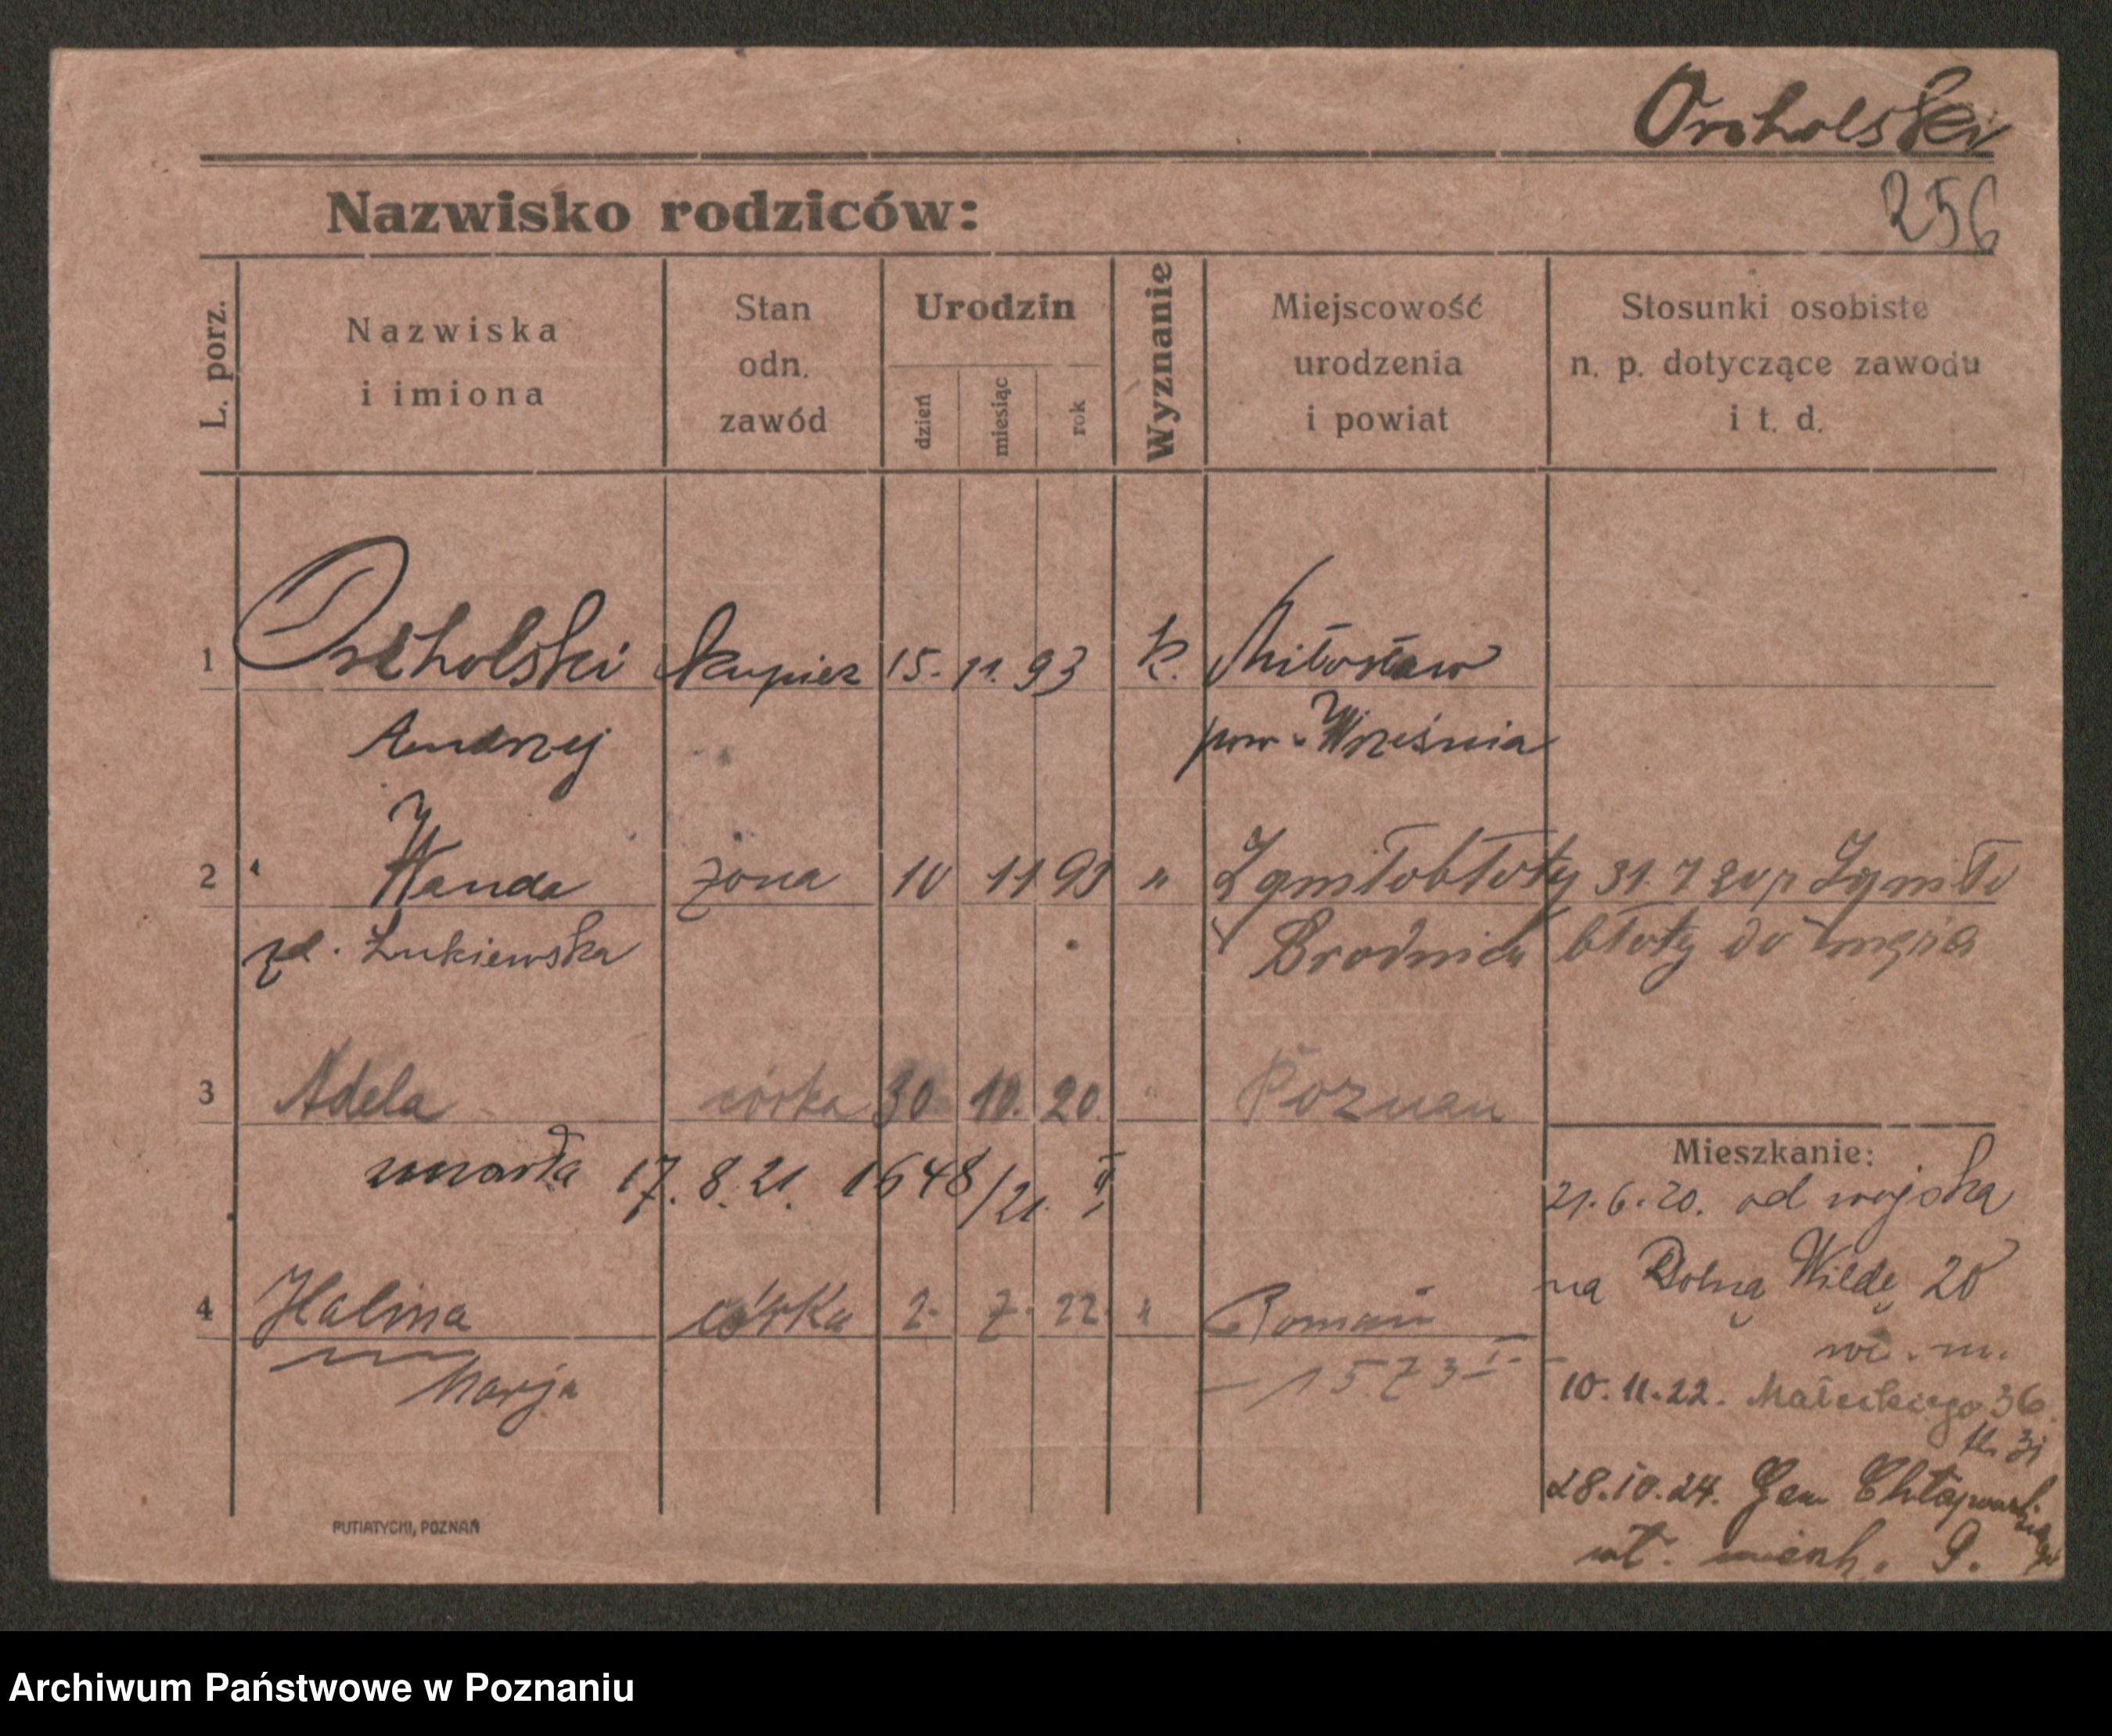 Orcholski
Nazwisko rodziców:
256
L. porz.
Nazwiska
i imiona
Stan
odn.
zawód
Urodzin
dzień
miesiąc
rok
Wyznanie
Miejscowość
urodzenia
i powiat
Stosunki osobiste
n. p. dotyczące zawodu
i t. d.
1 Orcholski kupiec 15. 11. 93 k. Miłosław
Andrzej pow. Września
2 Wanda żona 10 11 93 " Zgniłobłoty 31. 7 20 z Zgniło
zd. Łukiewska Brodnica błoty do męża
3 Adela córka 30. 10. 20. " Poznań
umarła 17. 8. 21. 1648/21. II
Mieszkanie:
21. 6. 20. od wojska
na Dolną Wildę 20
4 Halina córka 2. 7. 22. " Poznań
Marja – 1573 I –
10. 11. 22. Małeckiego 36
28. 10. 24. Gen Chłapowskiego
wł. mieszk. 9.
PUTIATYCKI, POZNAŃ
Archiwum Państwowe w Poznaniu